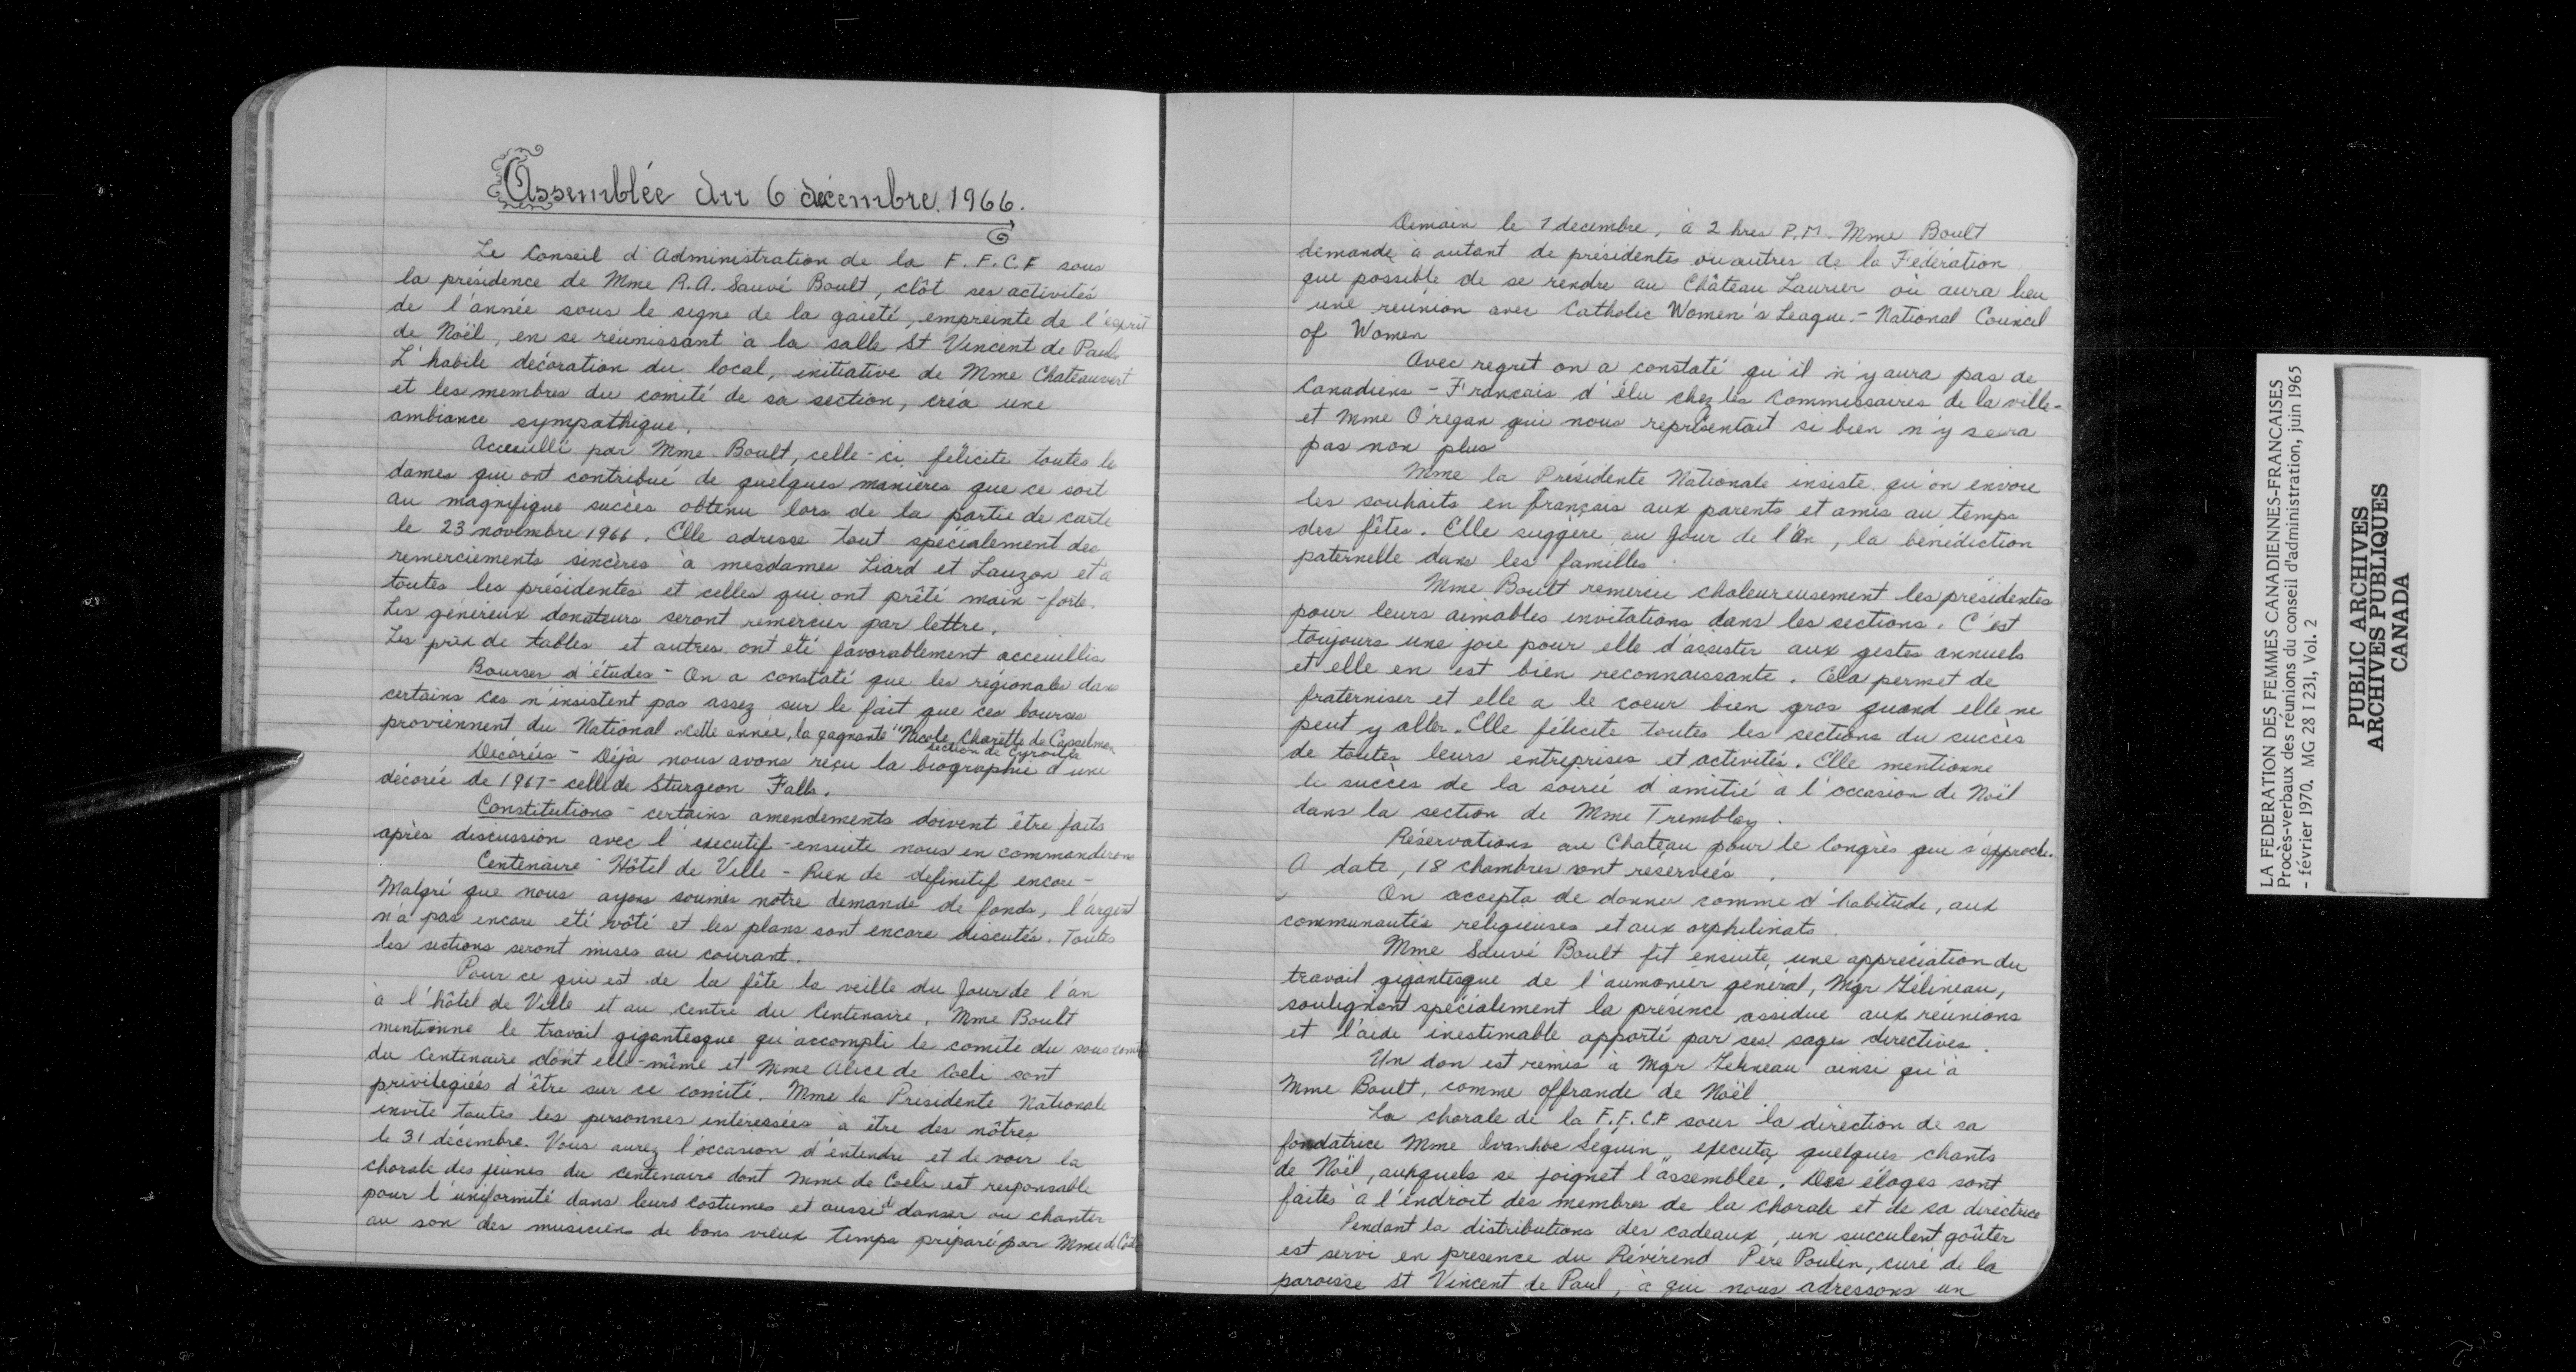 Assemblée du 6 décembre 1966.
Le Conseil d'Administration de la F.F.C.F sous
la présidence de Mme R.A. Sauvé Boult, clôt ses activités
de l'année sous le signe de la gaieté, empreinte de l'esprit
de Noël, en se réunissant à la salle St Vincent de Paul
L'habile décoration du local, initiative de Mme Chateauvert
et les membres du comité de sa section, créa une
ambiance sympathique.
Acceuilli par Mme Boult, celle-ci félicite toutes le
dames qui ont contribué de quelques manières que ce soit
au magnifique succès obtenu lors de la partie de carte
le 23 novembre 1966. Elle adresse tout spécialement des
remerciements sincères à mesdames Liard et Lauzon et à
toutes les présidentes et celles qui ont prêté main-forte.
Les généreux donateurs seront remercier par lettre.
Les prix de tables et autres ont été favorablement acceuillis
Bourses d'études - On a constaté que les régionales dans
certains cas n'insistent pas assez sur le fait que ces bourses
proviennent du National. Cette année, la gagnante "Nicole Charette de Casselman
section de Gyroville
Décorées - Déjà nous avons reçu la biographie d'une
décorée de 1967 - celle de Sturgeon Falls.
Constitutions - certains amendements doivent être faits
après discussion avec l'executif - ensuite nous en commanderons
Centenaire - Hôtel de Ville - Rien de définitif encore -
Malgré que nous ayons soumis notre demande de fonds, l'argent
n'a pas encore été vôté et les plans sont encore discutés. Toutes
les sections seront mises au courant.
Pour ce qui est de la fête la veille du Jour de l'an
à l'hôtel de Ville et au centre du Centenaire, Mme Boult
mentionne le travail gigantesque qu'accompli le comité du sous comité
du Centenaire dont elle-même et Mme Alice de Coeli sont
privilégiées d'être sur ce comité. Mme la Présidente Nationale
invite toutes les personnes intéressées à être des nôtres
le 31 décembre. Vous aurez l'occasion d'entendre et de voir la
chorale des jeunes du centenaire dont Mme de Coeli est responsable
pour l'uniformité dans leurs costumes et aussi de danser ou chanter
au son des musiciens de bons vieux temps préparé par Mme de Coeli
Demain le 7 decembre, à 2 hres P.M. Mme Boult
demande à autant de présidentes ou autres de la Fédération
que possible de se rendre au Château Laurier où aura lieu
une réunion avec Catholic Women's League. - National Council
of Women
Avec regret on a constaté qu'il n'y aura pas de
Canadiens - Francais d'élu chez les Commissaires de la ville -
et Mme O'regan qui nous représentait si bien n'y sera
pas non plus
Mme la Présidente Nationale insiste qu'on envoie
les souhaits en français aux parents et amis au temps
des fêtes. Elle suggère au Jour de l'An, la bénédiction
paternelle dans les familles.
Mme Boult remercie chaleureusement les présidentes
pour leurs aimables invitations dans les sections. C'est
toujours une joie pour elle d'assister aux gestes annuels
et elle en est bien reconnaissante. Cela permet de
fraterniser et elle a le coeur bien gros quand elle ne
peut y aller. Elle félicite toutes les sections du succès
de toutes leurs entreprises et activités. Elle mentionne
le succès de la soirée d'amitié à l'occasion de Noël
dans la section de Mme Tremblay.
Réservations au Chateau pour le Congrès qui s'approche.
A date, 18 chambres sont réservées.
On accepta de donner comme d'habitude, aux
communautés religieuses et aux orphelinats.
Mme Sauvé Boult fit ensuite une appréciation du
travail gigantesque de l'aumonier général, Mgr Gélineau,
soulignant spécialement la présence assidue aux réunions
et l'aide inestimable apporté par ses sages directives.
Un don est remis à Mgr Gelineau ainsi qu'à
Mme Boult, comme offrande de Noël
La chorale de la F.F.C.F sous la direction de sa
fondatrice Mme Ivanhoe Séguin, executa quelques chants
de Noël, auxquels se joignet l'assemblée. Des éloges sont
faites à l'endroit des membres de la chorale et de sa directrice
Pendant la distributions des cadeaux, un succulent goûter
est servi en présence du Révérend Père Poulin, curé de la
paroisse St Vincent de Paul, à qui nous adressons un
LA FEDERATION DES FEMMES CANADIENNES-FRANCAISES
Procès-verbaux des réunions du conseil d'administration, juin 1965
- février 1970. MG 28 I 231, Vol. 2
PUBLIC ARCHIVES
ARCHIVES PUBLIQUES
CANADA